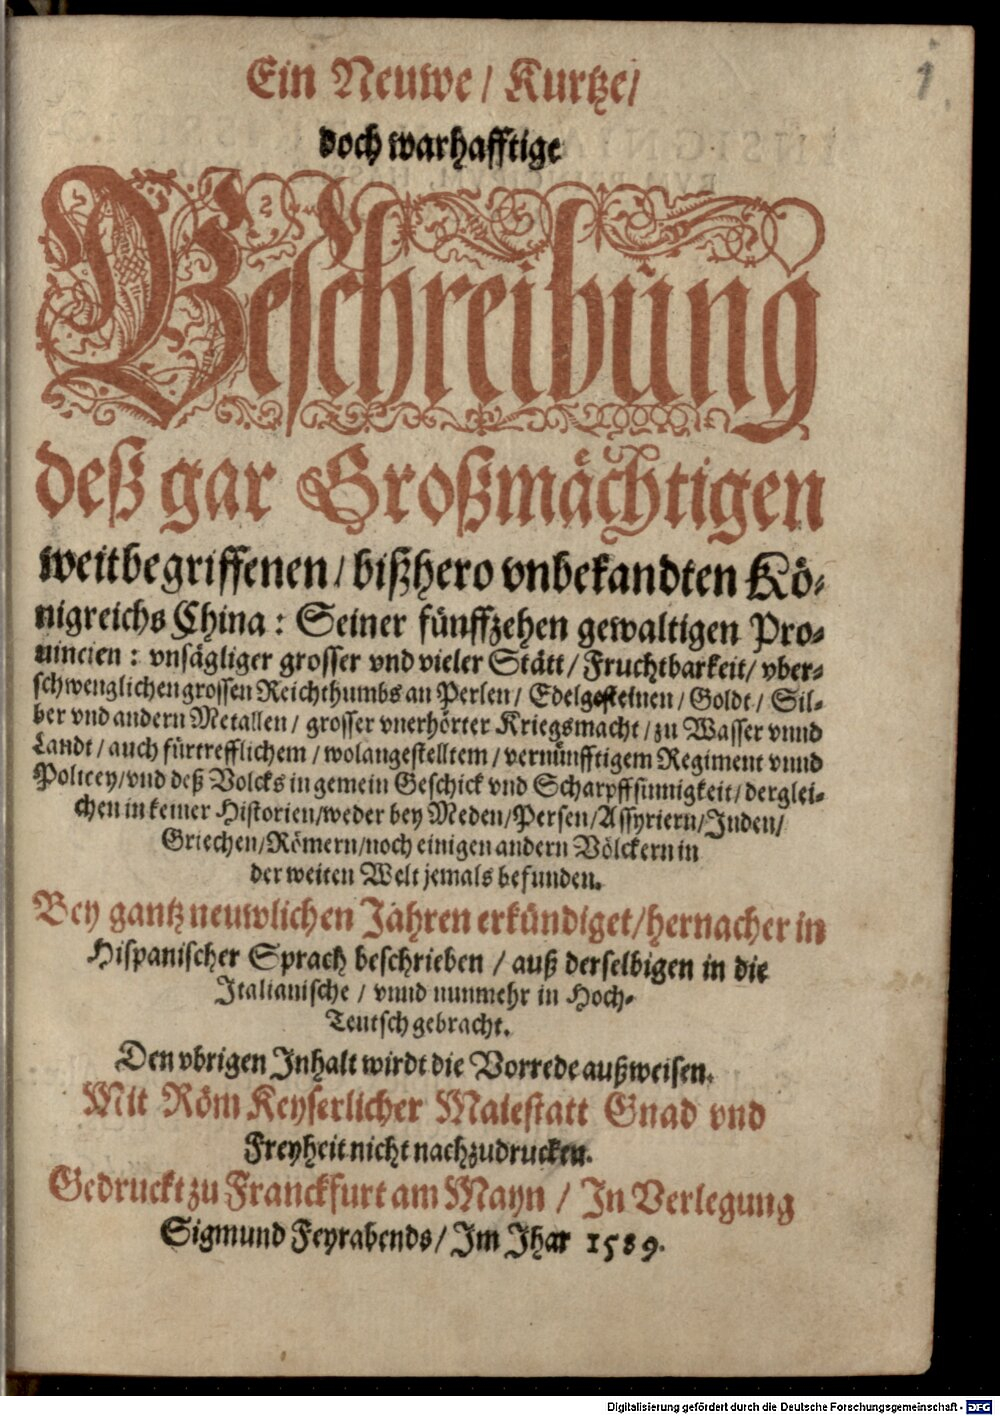 Ein Neuwe / Kurtze /
doch warhafftige
Beschreibung
deß gar Großmächtigen
weitbegriffenen / bißhero vnbekandten Kö-
nigreichs China : Seiner fünffzehen gewaltigen Pro-
uincien : vnsägliger grosser vnd vieler Stätt / Fruchtbarkeit / vber-
schwenglichen grossen Reichthumbs an Perlen / Edelgesteinen / Goldt / Sil-
ber vnd andern Metallen / grosser vnerhörter Kriegsmacht / zu Wasser vnnd
Landt / auch fürtrefflichem / wolangestelltem / vernünfftigem Regiment vnnd
Policey / vnd deß Volcks in gemein Geschick vnd Scharpffsinnigkeit / derglei-
chen in keiner Historien / weder bey Meden / Persen / Assyriern / Juden /
Griechen / Römern / noch einigen andern Völckern in
der weiten Welt jemals befunden.
Bey gantz neuwlichen Jahren erkündiget / hernacher in
Hispanischer Sprach beschrieben / auß derselbigen in die
Italianische / vnnd nunmehr in Hoch-
Teutsch gebracht.
Den vbrigen Inhalt wirdt die Vorrede außweisen.
Mit Röm Keyserlicher Maiestatt Gnad vnd
Freyheit nicht nachzudrucken.
Gedruckt zu Franckfurt am Mayn / In Verlegung
Sigmund Feyrabends / Im Jhar 1589.
Digitalisierung gefördert durch die Deutsche Forschungsgemeinschaft - DFG